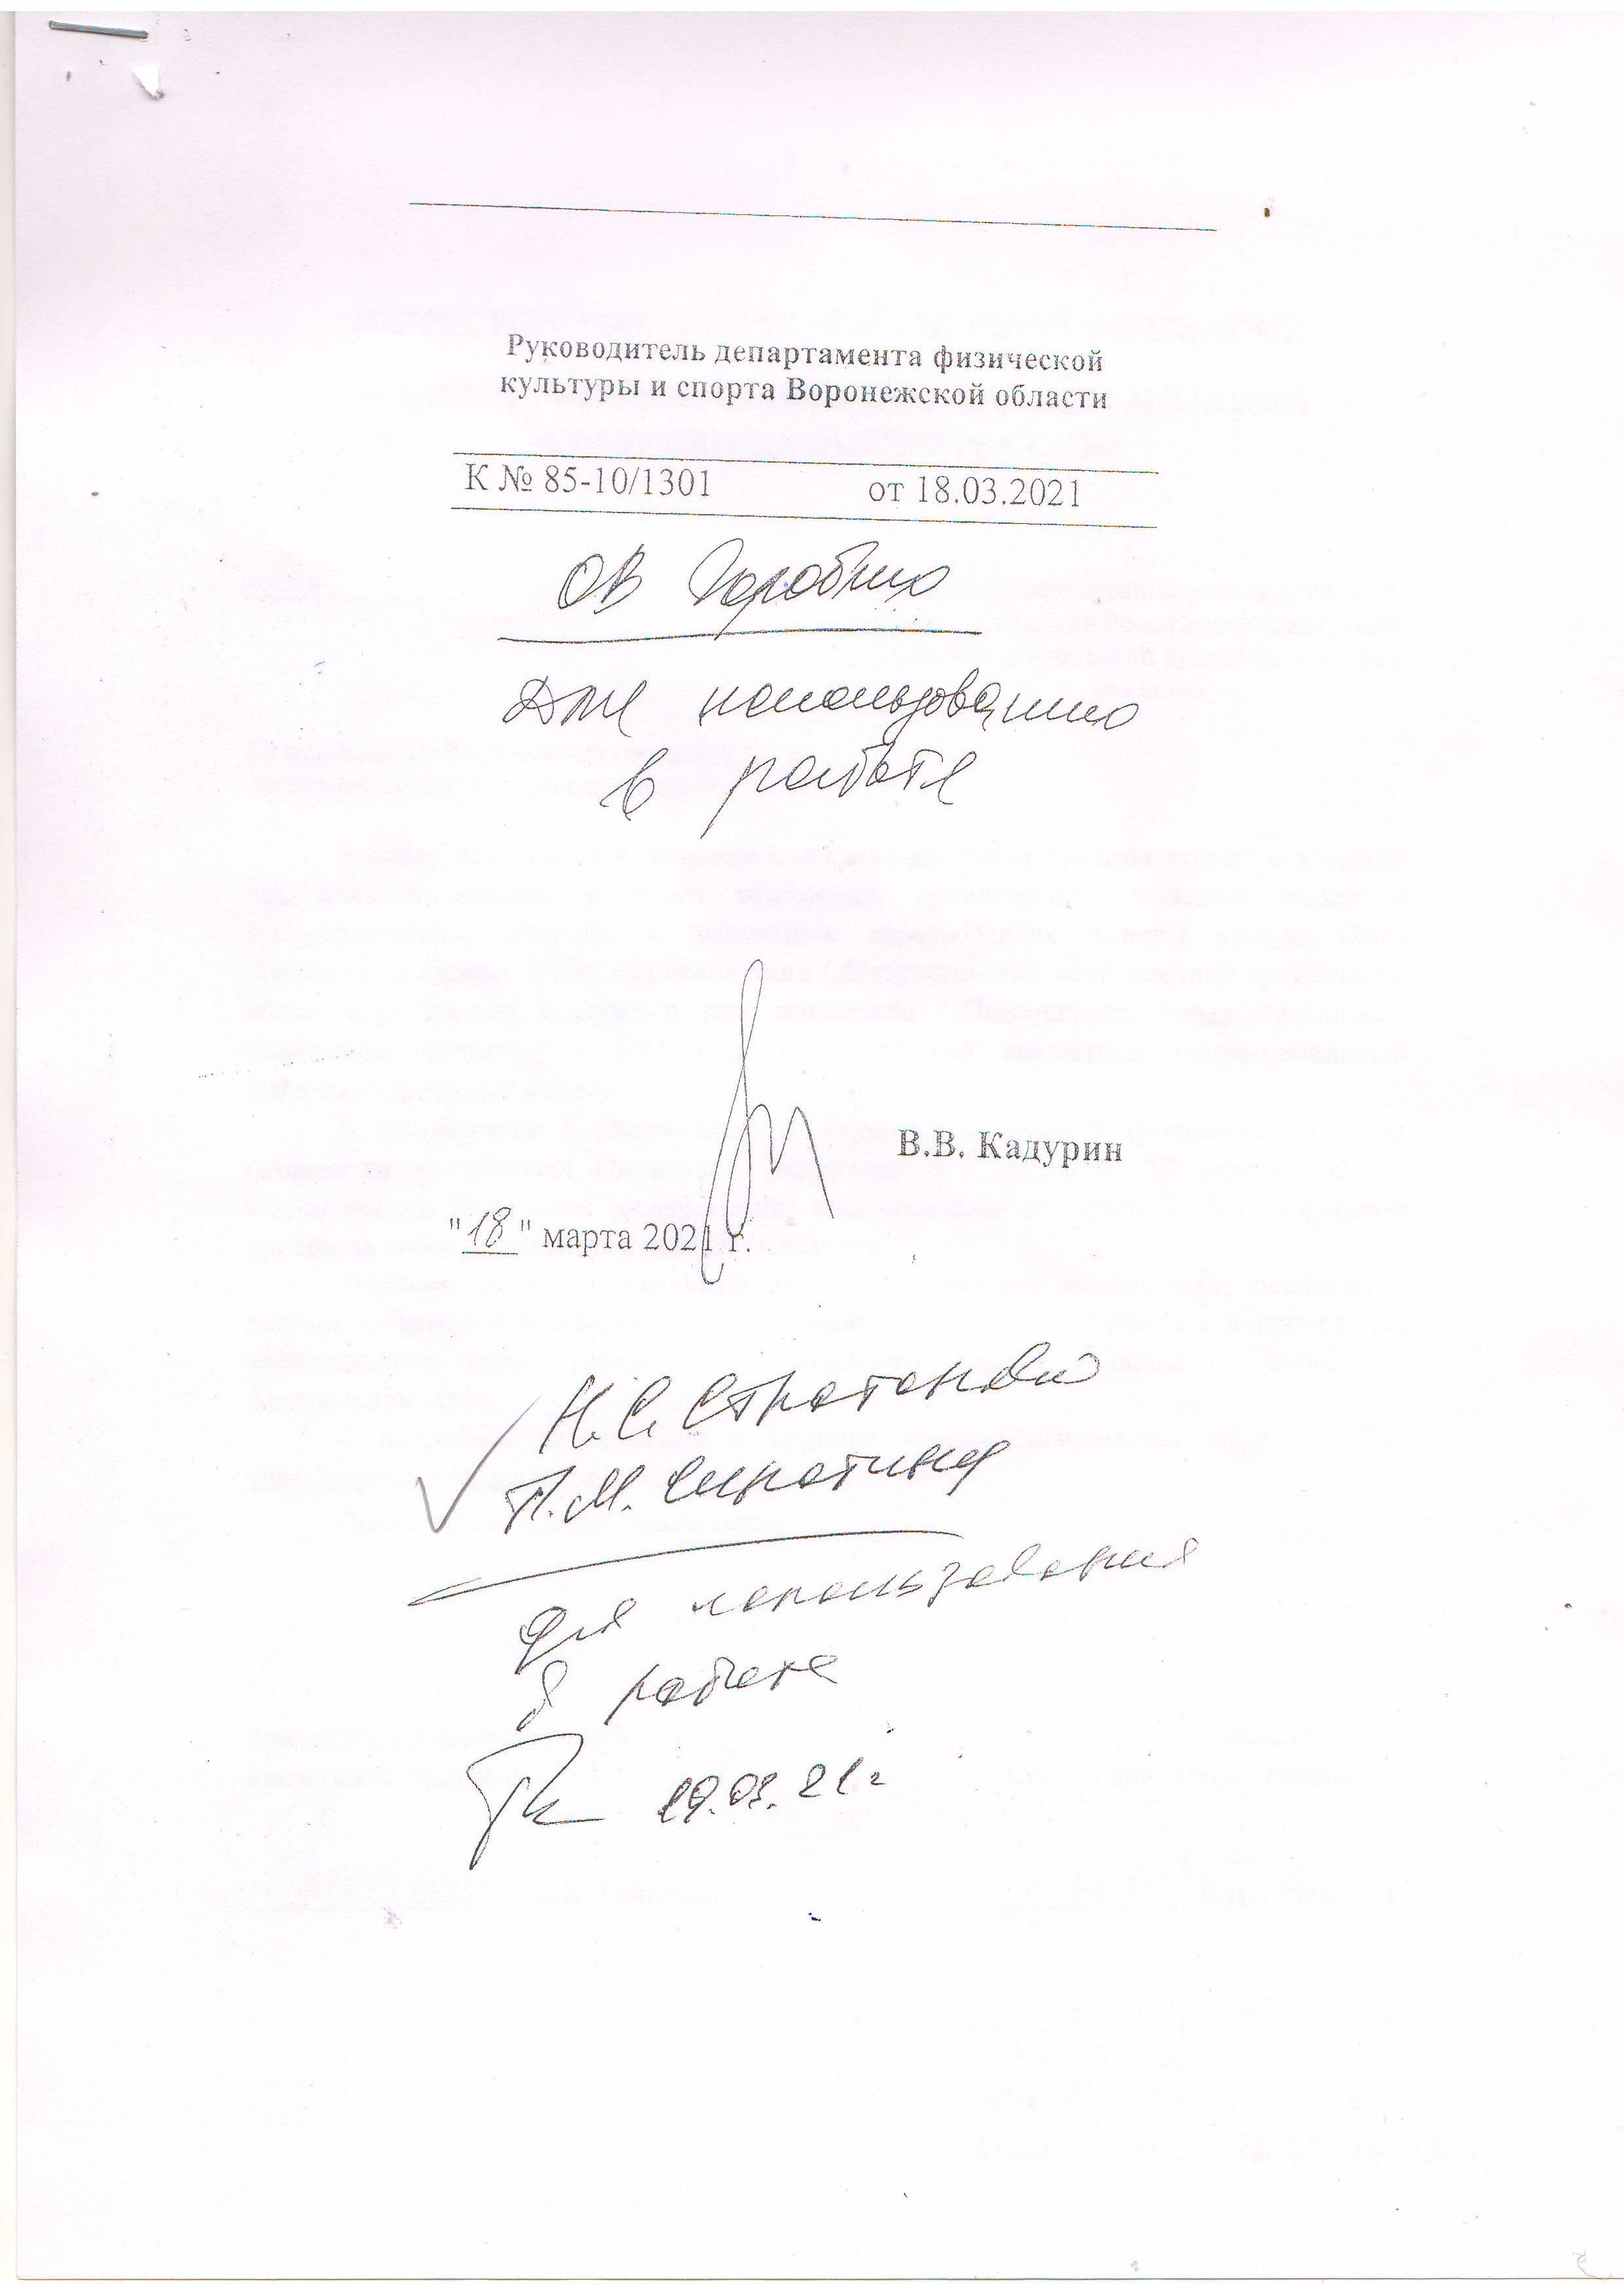 Руководитель департамента физической
культуры и спорта Воронежской области
К № 85-10/1301 от 18.03.2021
ОВ
Для использования
в работе
В.В. Кадурин
"18" марта 2021 г.
Н.С.
П.М.
для использования
в работе
19.03.21г